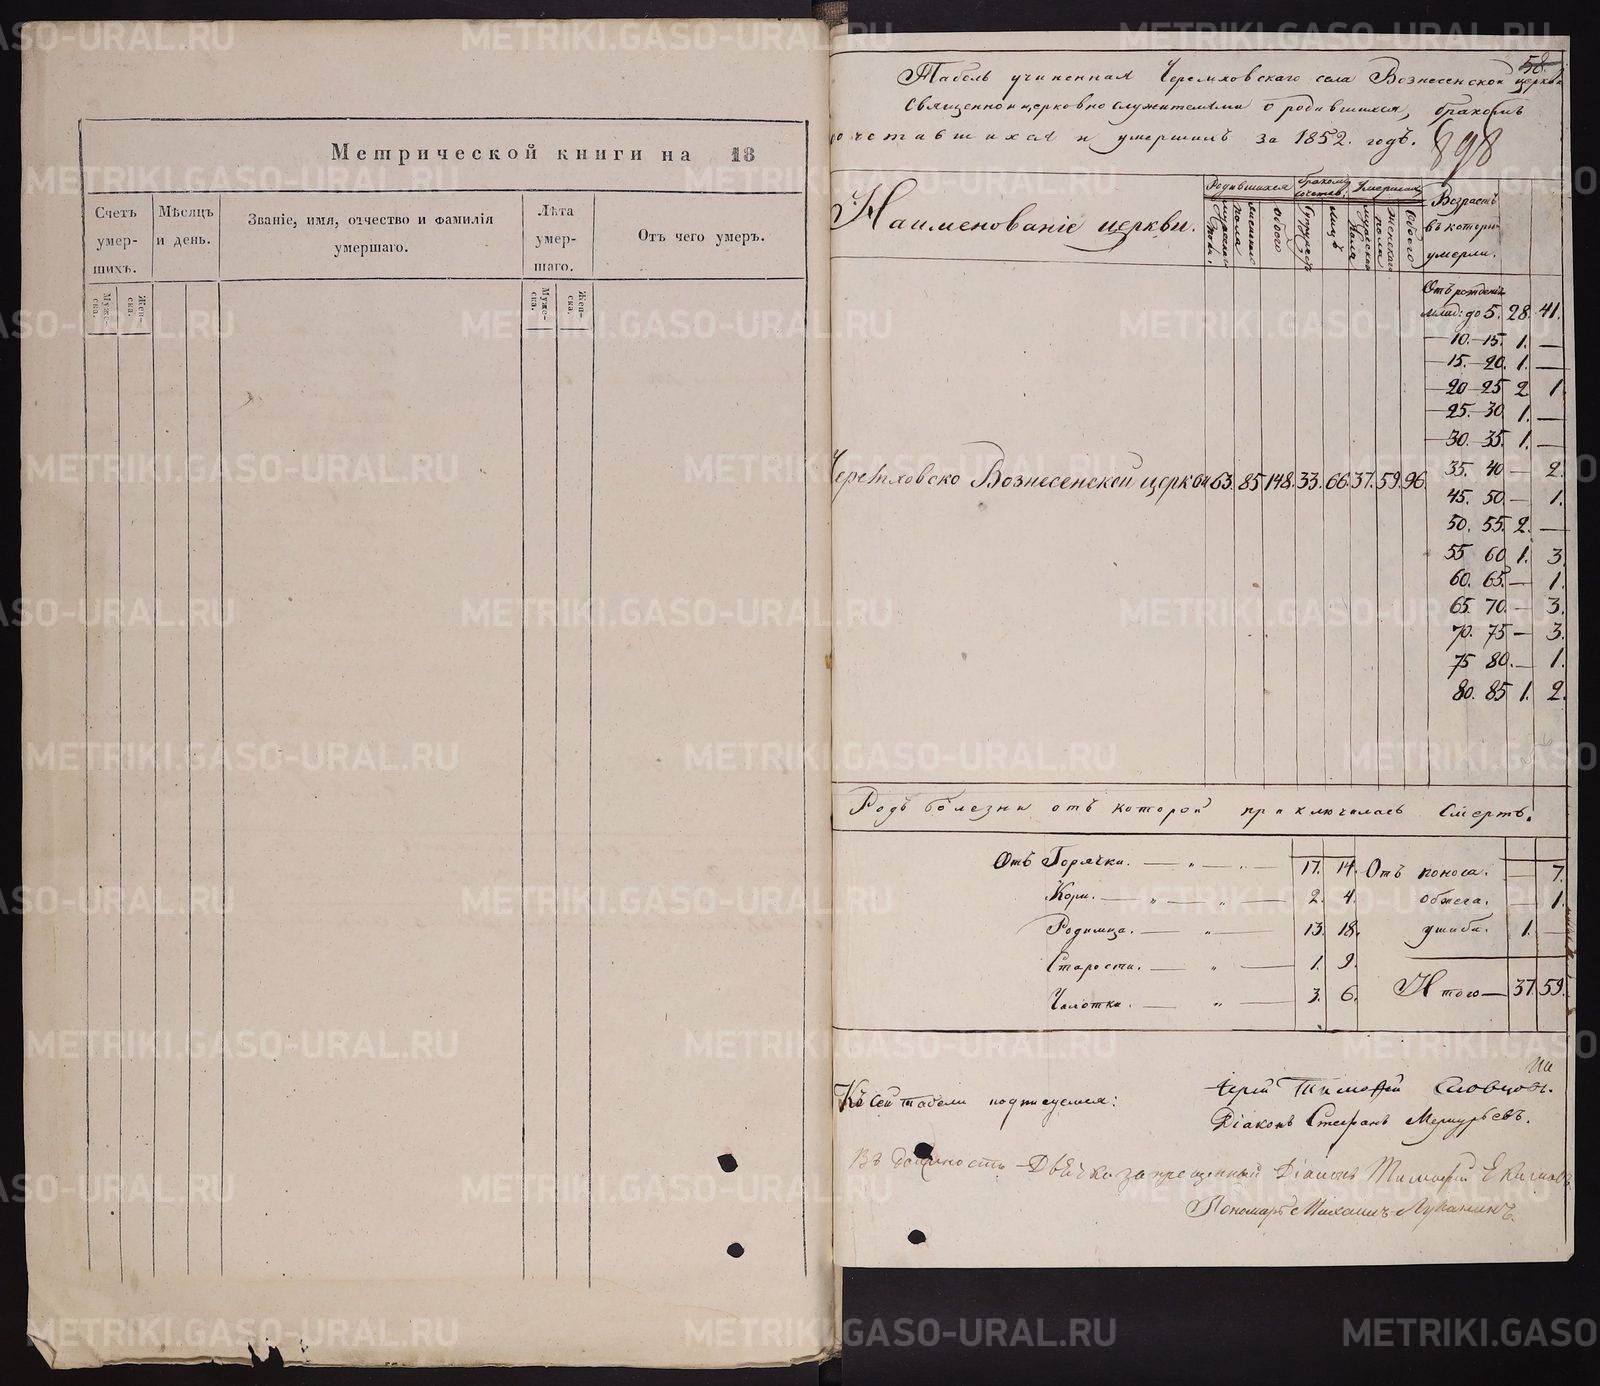 Метрической книги на 18
Счетъ умер-шихъ.
Мѣсяцъ и день.
Званіе, имя, отчество и фамилія умершаго.
Лѣта умер-шаго.
Отъ чего умеръ.
Муже-ска.
Жен-ска.
Муже-ска.
Жен-ска.
58.
Табель учиненная Черемховскаго села Вознесенской церкви
священноицерковнослужителями о родившихся, бракомъ
сочетавшихся и умершихъ за 1852. годъ.
898
Наименованіе церкви.
Родившихся
бракомъ сочетав:
Умершихъ
Возрастъ въ которы умерли.
мужескаго пола
женскаго
обоего
супружествъ
лицъ
мужескаго пола
женскаго пола
обоего
Отъ рожденія
млад: до 5. 28. 41.
10. 15. 1. —
15. 20. 1. —
20 25 2 1.
25. 30. 1. —
30. 35. 1. —
35. 40 — 2.
45. 50. — 1.
50. 55. 2. —
55 60 1. 3.
60. 65. — 1.
65. 70. — 3.
70. 75 — 3.
75 80. — 1.
80. 85 1. 2.
Черемховско Вознесенской церкви 63. 85. 148. 33. 66. 37. 59. 96.
Родъ болезни отъ которой приключилась смерть.
Отъ Горячки. — „ — 17. 14.
Кори. — „ — „ — 2. 4.
Родимца. — „ — 13. 18.
Старости. — „ — 1. 9.
Чахотки. — „ — 3. 6.
Отъ поноса. — 7.
обжега. — 1.
ушиба. 1. —
Итого — 37. 59.
Къ сей табели подписуемся:
Іерей Тимофей Словцовъ.
Діаконъ Стефанъ Меркурьевъ.
Въ должность Дьячка запрещенный Діаконъ Тимофей Екимовъ
Пономарь Михаилъ Луканинъ.
METRIKI.GASO-URAL.RU